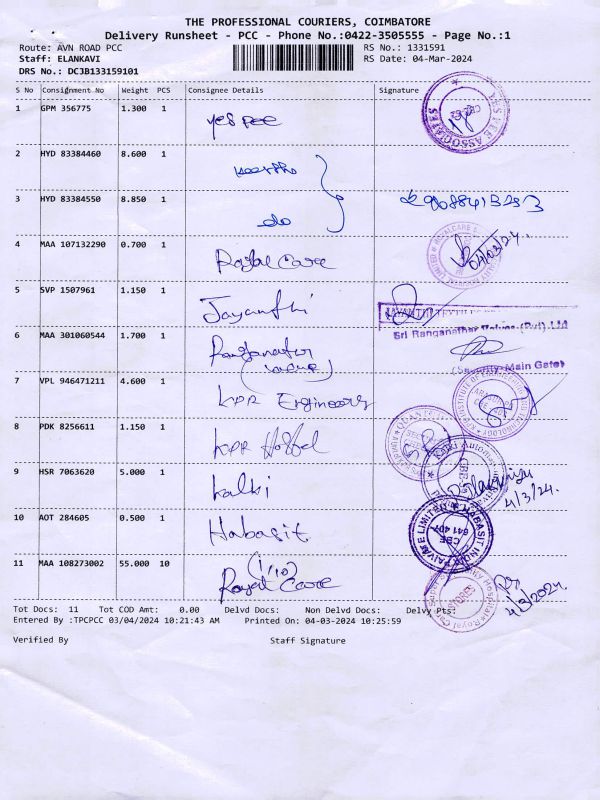 THE PROFESSIONAL COURIERS, COIMBATORE
Delivery Runsheet - PCC - Phone No.:0422-3505555 - Page No.:1
Route: AVN ROAD PCC RS No.: 1331591
Staff: ELANKAVI RS Date: 04-Mar-2024
DRS No.: DCJB133159101
S No Consignment No Weight PCS Consignee Details Signature
1 GPM 356775 1.300 1 yes pee
2 HYD 83384460 8.600 1
3 HYD 83384550 8.850 1 do
4 MAA 107132290 0.700 1 Royal Care 04/03/24.
5 SVP 1507961 1.150 1 Jayanthi
6 MAA 301060544 1.700 1 Ranganathar
Sri Ranganathar Valves (Pvt) Ltd
(Security-Main Gate)
7 VPL 946471211 4.600 1 KPR Engineering
8 PDK 8256611 1.150 1 KPR Hostel
9 HSR 7063620 5.000 1 kalki 4/3/24.
10 AOT 284605 0.500 1 Habasit
11 MAA 108273002 55.000 10 (1/10) Royal Care 4/3/2024.
Tot Docs: 11 Tot COD Amt: 0.00 Delvd Docs: Non Delvd Docs: Delvy Pts:
Entered By :TPCPCC 03/04/2024 10:21:43 AM Printed On: 04-03-2024 10:25:59
Verified By Staff Signature